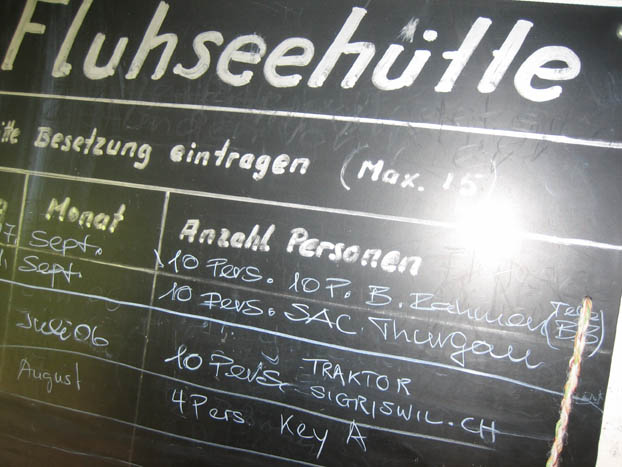 Fluhseehütte
Besetzung eintragen (Max. 15)
Monat Anzahl Personen
7 Sept. 10 Pers. 10 P. B.
Sept. 10 Pers. SAC. Thurgau
Juli 06 10 Pers. TRAKTOR
SIGRISWIL.CH
August 4 Pers. Key A